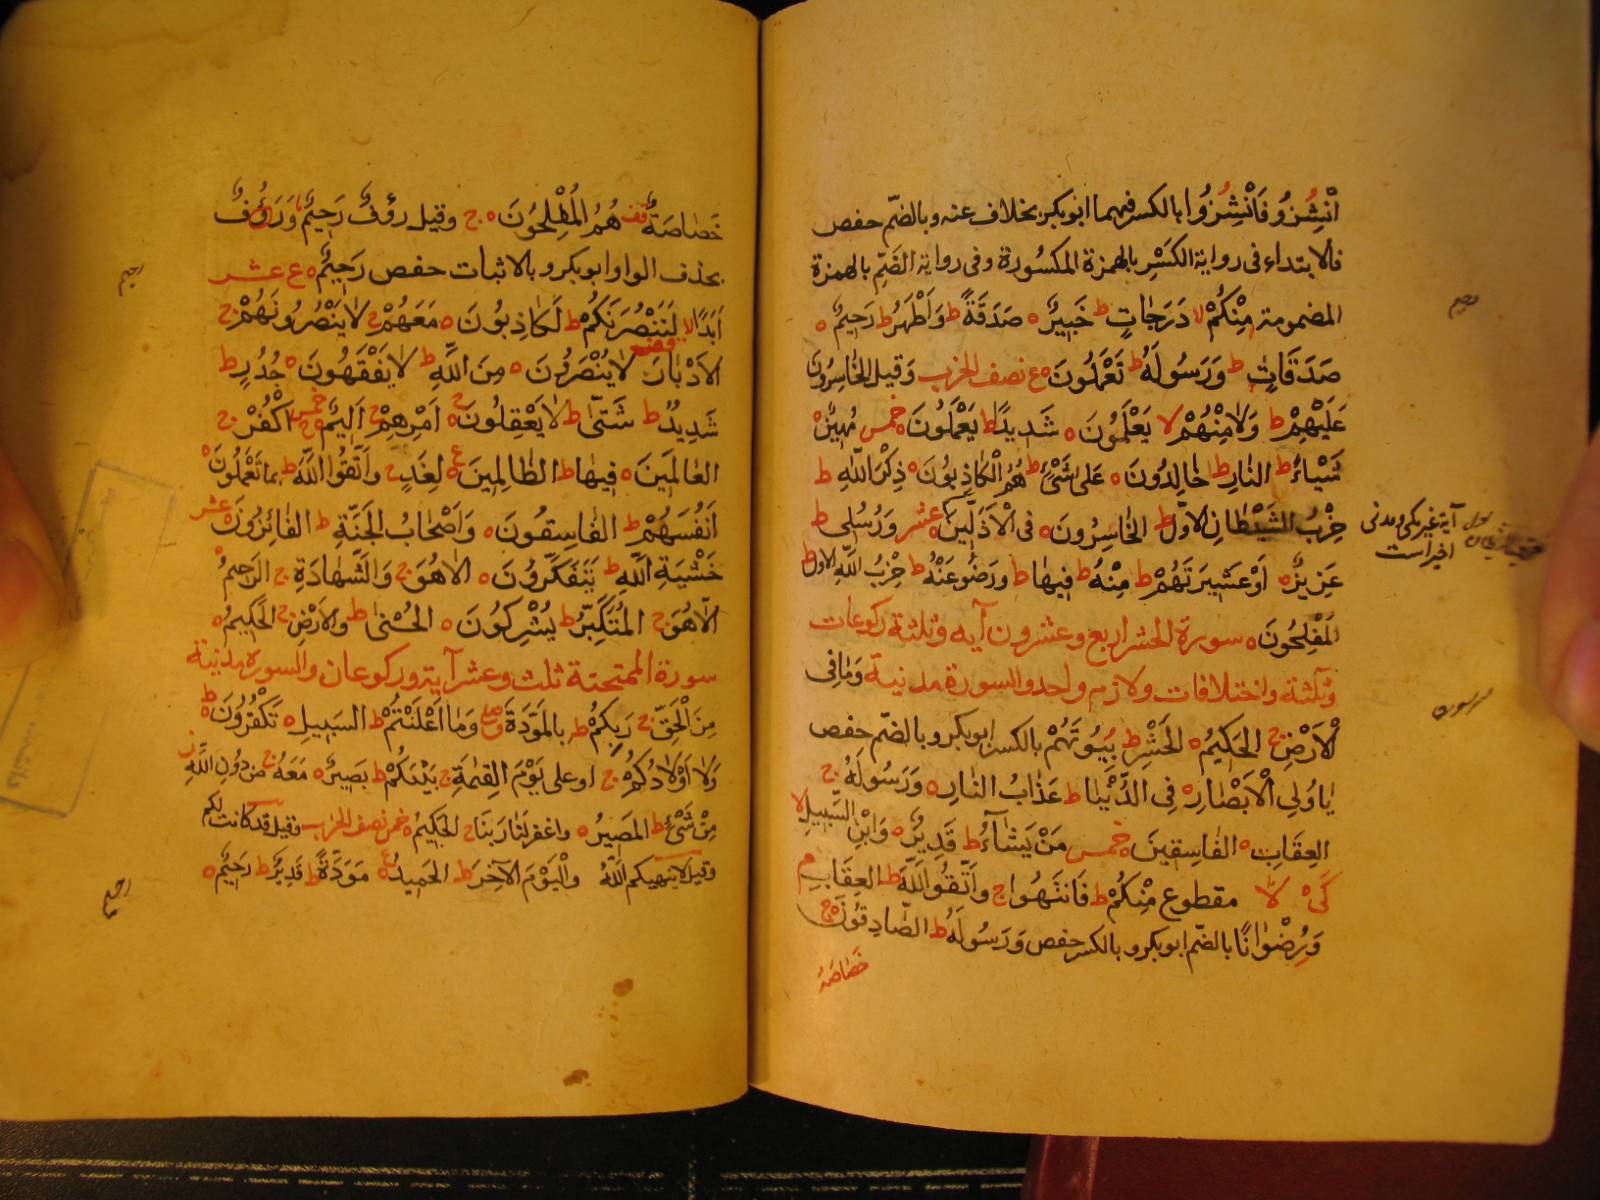 اْنْشِزُو فَاْنْشِزُوا بالكسر فيهما ابوبكر بخلاف عنه و بالضّم حفص
فالابتداء فى رواية الكَسْرِ بالهمزة المكسُورة و فى رواية الضَّمِّ بالهمزة
المضمومة مِنْكُمْ لا دَرَجَاتٍ ط خَبِيرٌ ه صَدَقَةً ط وَاَطْهَرُ ط رَحِيمٌ ه
صَدَقَاتٍ ط وَرَسُولَهُ ط تَعْمَلُونَ ع نصف الحزب وَقيل الخَاسِرُونَ
عَلَيْهِمْ ط وَلاَمِنْهُمْ لا يَعْلَمُونَ ه شَدِيدًا ط يَعْمَلُونَ ه خمس مُهِينٌ ه
شَيْءًا ط النَّارِ ط خَالِدُونَ ه عَلىٰ شَيْءٍ ط هُمُ الْكَاذِبُونَ ه ذِكْرَ اللّٰهِ ط
حِزْبُ الشَّيْطَانِ الاوّل ط الخَاسِرُونَ ه فى الْاَذَلِّينَ ه عشر وَرُسُلى ط
عَزِيزٌ ه اَوْعَشِيرَتَهُمْ ط مِنْهُ ط فِيهَا ط ورَضُوعَنْهُ ط حِزْبُ اللّٰهِ الاول ط
المُفْلِحُونَ ه سورة الحشر اربع وعشرون آيه و ثلثة ركوعات
وثلثة واختلافات ولازم واحد والسورة مدنية وَمَافِى
الْاَرْضِ ج الحَكِيمُ ه الحَشْرِ ط بِيُوتَهُمْ بالكسر ابوبكر و بالضّم حفص
يَااُولِى الْاَبْصَارِ ه فِى الدُّنْيَا ط عَذَابُ النَّارِ ه وَرَسُولَهُ ج
العِقَابِ ه الفَاسِقِينَ ه خمس مَنْ يَشَاءُ ط قَدِيرٌ ه وَابْنِ السَّبِيلِ لا
كَىْ لا مقطوع مِنْكُمْ ط فَانتَهُوا ج وَاتَّقُوا اللّٰهَ ط العِقَابِ م
وَرُضْوَانًا بالضّم ابوبكر و بالكسر حفص وَرَسُولَهُ ط الصَّادِقُونَ ج
خَصَاصَةٌ
آية غير مكى و مدنى
اخير است
خَصَاصَةٌ قف هُمُ المُفْلِحُونَ ه ج وقيل رؤفٌ رَحِيمٌ وَرَؤُفٌ
بحذف الواو ابوبكر و بالاثبات حفص رَحِيمٌ ه ع عشر
اَبَدًا لا لَنَنْصُرَنَّكُمْ ط لَكَاذِبُونَ ه مَعَهُمْ ج لاَيَنْصُرُونَهُمْ ج
الاَدْبَارَ قف لاَيُنْصَرُونَ ه مِنَ اللّٰهِ ط لايَفْقَهُونَ ه جُدُرٍ ط
شَدِيدٌ ط شَتّىٰ ط لاَيَعْقِلُونَ ج اَمْرِهِمْ ج اَلِيمٌ ج خمس اكْفُرْ ج
العَالَمِينَ ه فِيهَا ط الظَّالِمِينَ ع لِغَدٍ ج وَاتَّقُوا اللّٰهَ ط بما تَعْمَلُونَ ه
اَنفُسَهُمْ ط الفَاسِقُونَ ه وَاَصْحَابُ الجَنَّةِ ط الفَائِزُونَ ه عشر
خَشْيَةِ اللّٰهِ ط يَتَفَكَّرُونَ ه الاهُوَ ج وَالشَّهَادَةِ ج الرَّحِيمُ ه
الاّهُوَ ج المُتَكَبِّرُ ط يُشْرِكُونَ ه الحُسْنىٰ ط والاَرْضِ ج الحَكِيمُ ه
سورة الممتحنة ثلث وعشر آية وركوعان والسورة مدنية
مِنَ الْحَقِّ ج رَبِكُمْ ط بالمَوَدَّةِ وَمَا اَعْلَنْتُمْ ط السَبيلِ ه تَكْفُرُونَ ه ط
وَلا اَوْلاَدُكُمْ ج او على يَوْمَ القِيٰمَةِ ج بَيْنَكُمْ ط بَصِيرٌ ه مَعَهُ ج مِن دُونِ اللّٰهِ ز
مِنْ شَىْءٍ ط المَصِيرُ ه واغفر لَنَا رَبَنَا ج الحَكِيمُ ه خمس نصف الحزب وقيل قد كانت لكم
وقيل لاينهيكم اللّٰهُ واليَوْمَ الآخِرَ ط الحَمِيدُ ع مَوَدَّةً ط قَدِيرٌ ط رَحِيمٌ ه